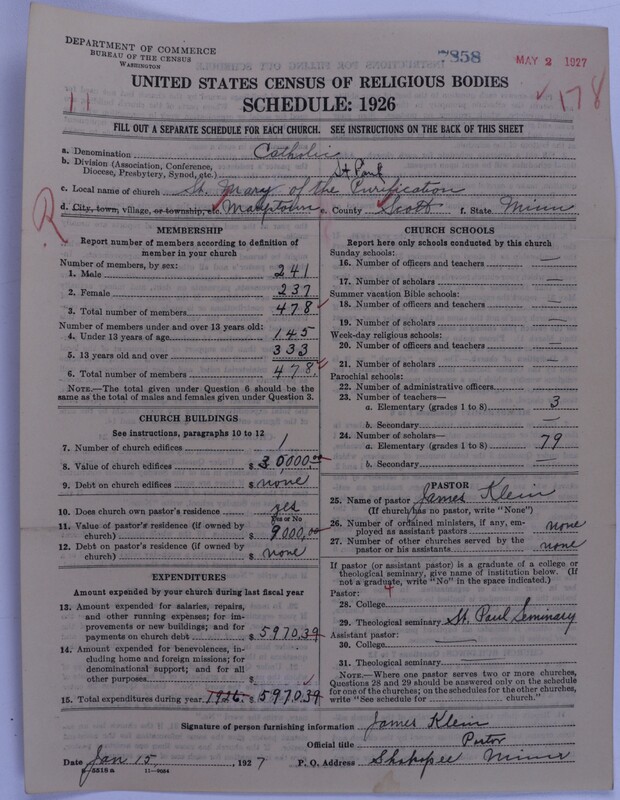 DEPARTMENT OF COMMERCE
BUREAU OF THE CENSUS
WASHINGTON
7858
MAY 2 1927
178
UNITED STATES CENSUS OF RELIGIOUS BODIES
SCHEDULE: 1926
11
FILL OUT A SEPARATE SCHEDULE FOR EACH CHURCH. SEE INSTRUCTIONS ON THE BACK OF THIS SHEET
a. Denomination Catholic
b. Division (Association, Conference, Diocese, Presbytery, Synod, etc.) St Paul
c. Local name of church St. Mary of the Purification
d. City, town, village, or township, etc. Marystown e. County Scott f. State Minn
R
MEMBERSHIP
Report number of members according to definition of
member in your church
Number of members, by sex:
1. Male 241
2. Female 237
3. Total number of members 478
Number of members under and over 13 years old:
4. Under 13 years of age 145
5. 13 years old and over 333
6. Total number of members 478
NOTE.—The total given under Question 6 should be
same as the total of males and females given under Question 3.
CHURCH BUILDINGS
See instructions, paragraphs 10 to 12
7. Number of church edifices 1
8. Value of church edifices $ 30,000,00
9. Debt on church edifices $ none
10. Does church own pastor's residence? yes
Yes or No
11. Value of pastor's residence (if owned by
church) $ 9000,00
12. Debt on pastor's residence (if owned by
church) $ none
EXPENDITURES
Amount expended by your church during last fiscal year
13. Amount expended for salaries, repairs,
and other running expenses; for im-
provements or new buildings; and for
payments on church debt $ 5970.39
14. Amount expended for benevolences, in-
cluding home and foreign missions; for
denominational support; and for all
other purposes $
15. Total expenditures during year 1926. $ 5970.39
CHURCH SCHOOLS
Report here only schools conducted by this church
Sunday schools:
16. Number of officers and teachers —
17. Number of scholars —
Summer vacation Bible schools:
18. Number of officers and teachers —
19. Number of scholars —
Week-day religious schools:
20. Number of officers and teachers —
21. Number of scholars —
Parochial schools:
22. Number of administrative officers
23. Number of teachers—
a. Elementary (grades 1 to 8) 3
b. Secondary —
24. Number of scholars—
a. Elementary (grades 1 to 8) 79
b. Secondary —
PASTOR
25. Name of pastor James Klein
(If church has no pastor, write "None")
26. Number of ordained ministers, if any, em-
ployed as assistant pastors none
27. Number of other churches served by the
pastor or his assistants none
If pastor (or assistant pastor) is a graduate of a college or
theological seminary, give name of institution below. (If
not a graduate, write "No" in the space indicated.)
Pastor: 4
28. College
29. Theological seminary St. Paul Seminary
Assistant pastor:
30. College —
31. Theological seminary —
NOTE.—Where one pastor serves two or more churches,
Questions 28 and 29 should be answered only on the schedule
for one of the churches; on the schedules for the other churches,
write "See schedule for church."
Signature of person furnishing information James Klein
Official title Pastor
Date Jan 15, 1927 P. O. Address Shakopee Minn
8-5518a 11—9664